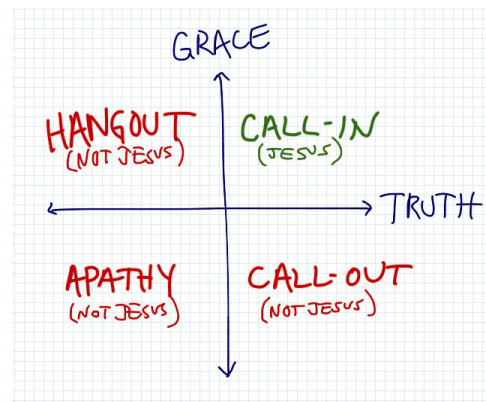 GRACE
HANGOUT
(NOT JESUS)
CALL-IN
(JESUS)
TRUTH
APATHY
(NOT JESUS)
CALL-OUT
(NOT JESUS)